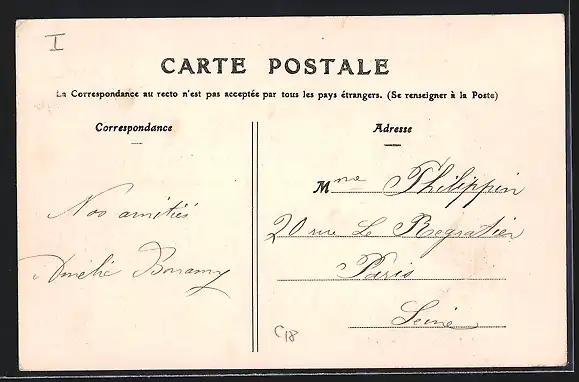 I
CARTE POSTALE
La Correspondance au recto n'est pas acceptée par tous les pays étrangers. (Se renseigner à la Poste)
Correspondance
Adresse
Nos amitiés
Amélie Bonamy
Mme Philippin
20 rue Le Regrattier
Paris
Seine
C18